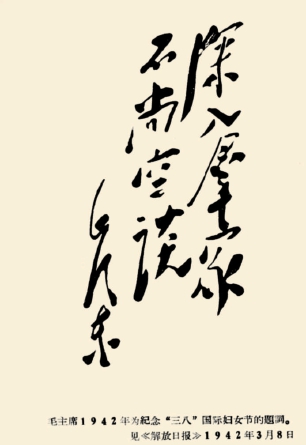 深入群众
不尚空谈
毛泽东
毛主席1942年为纪念“三八”国际妇女节的题词。
见《解放日报》1942年3月8日